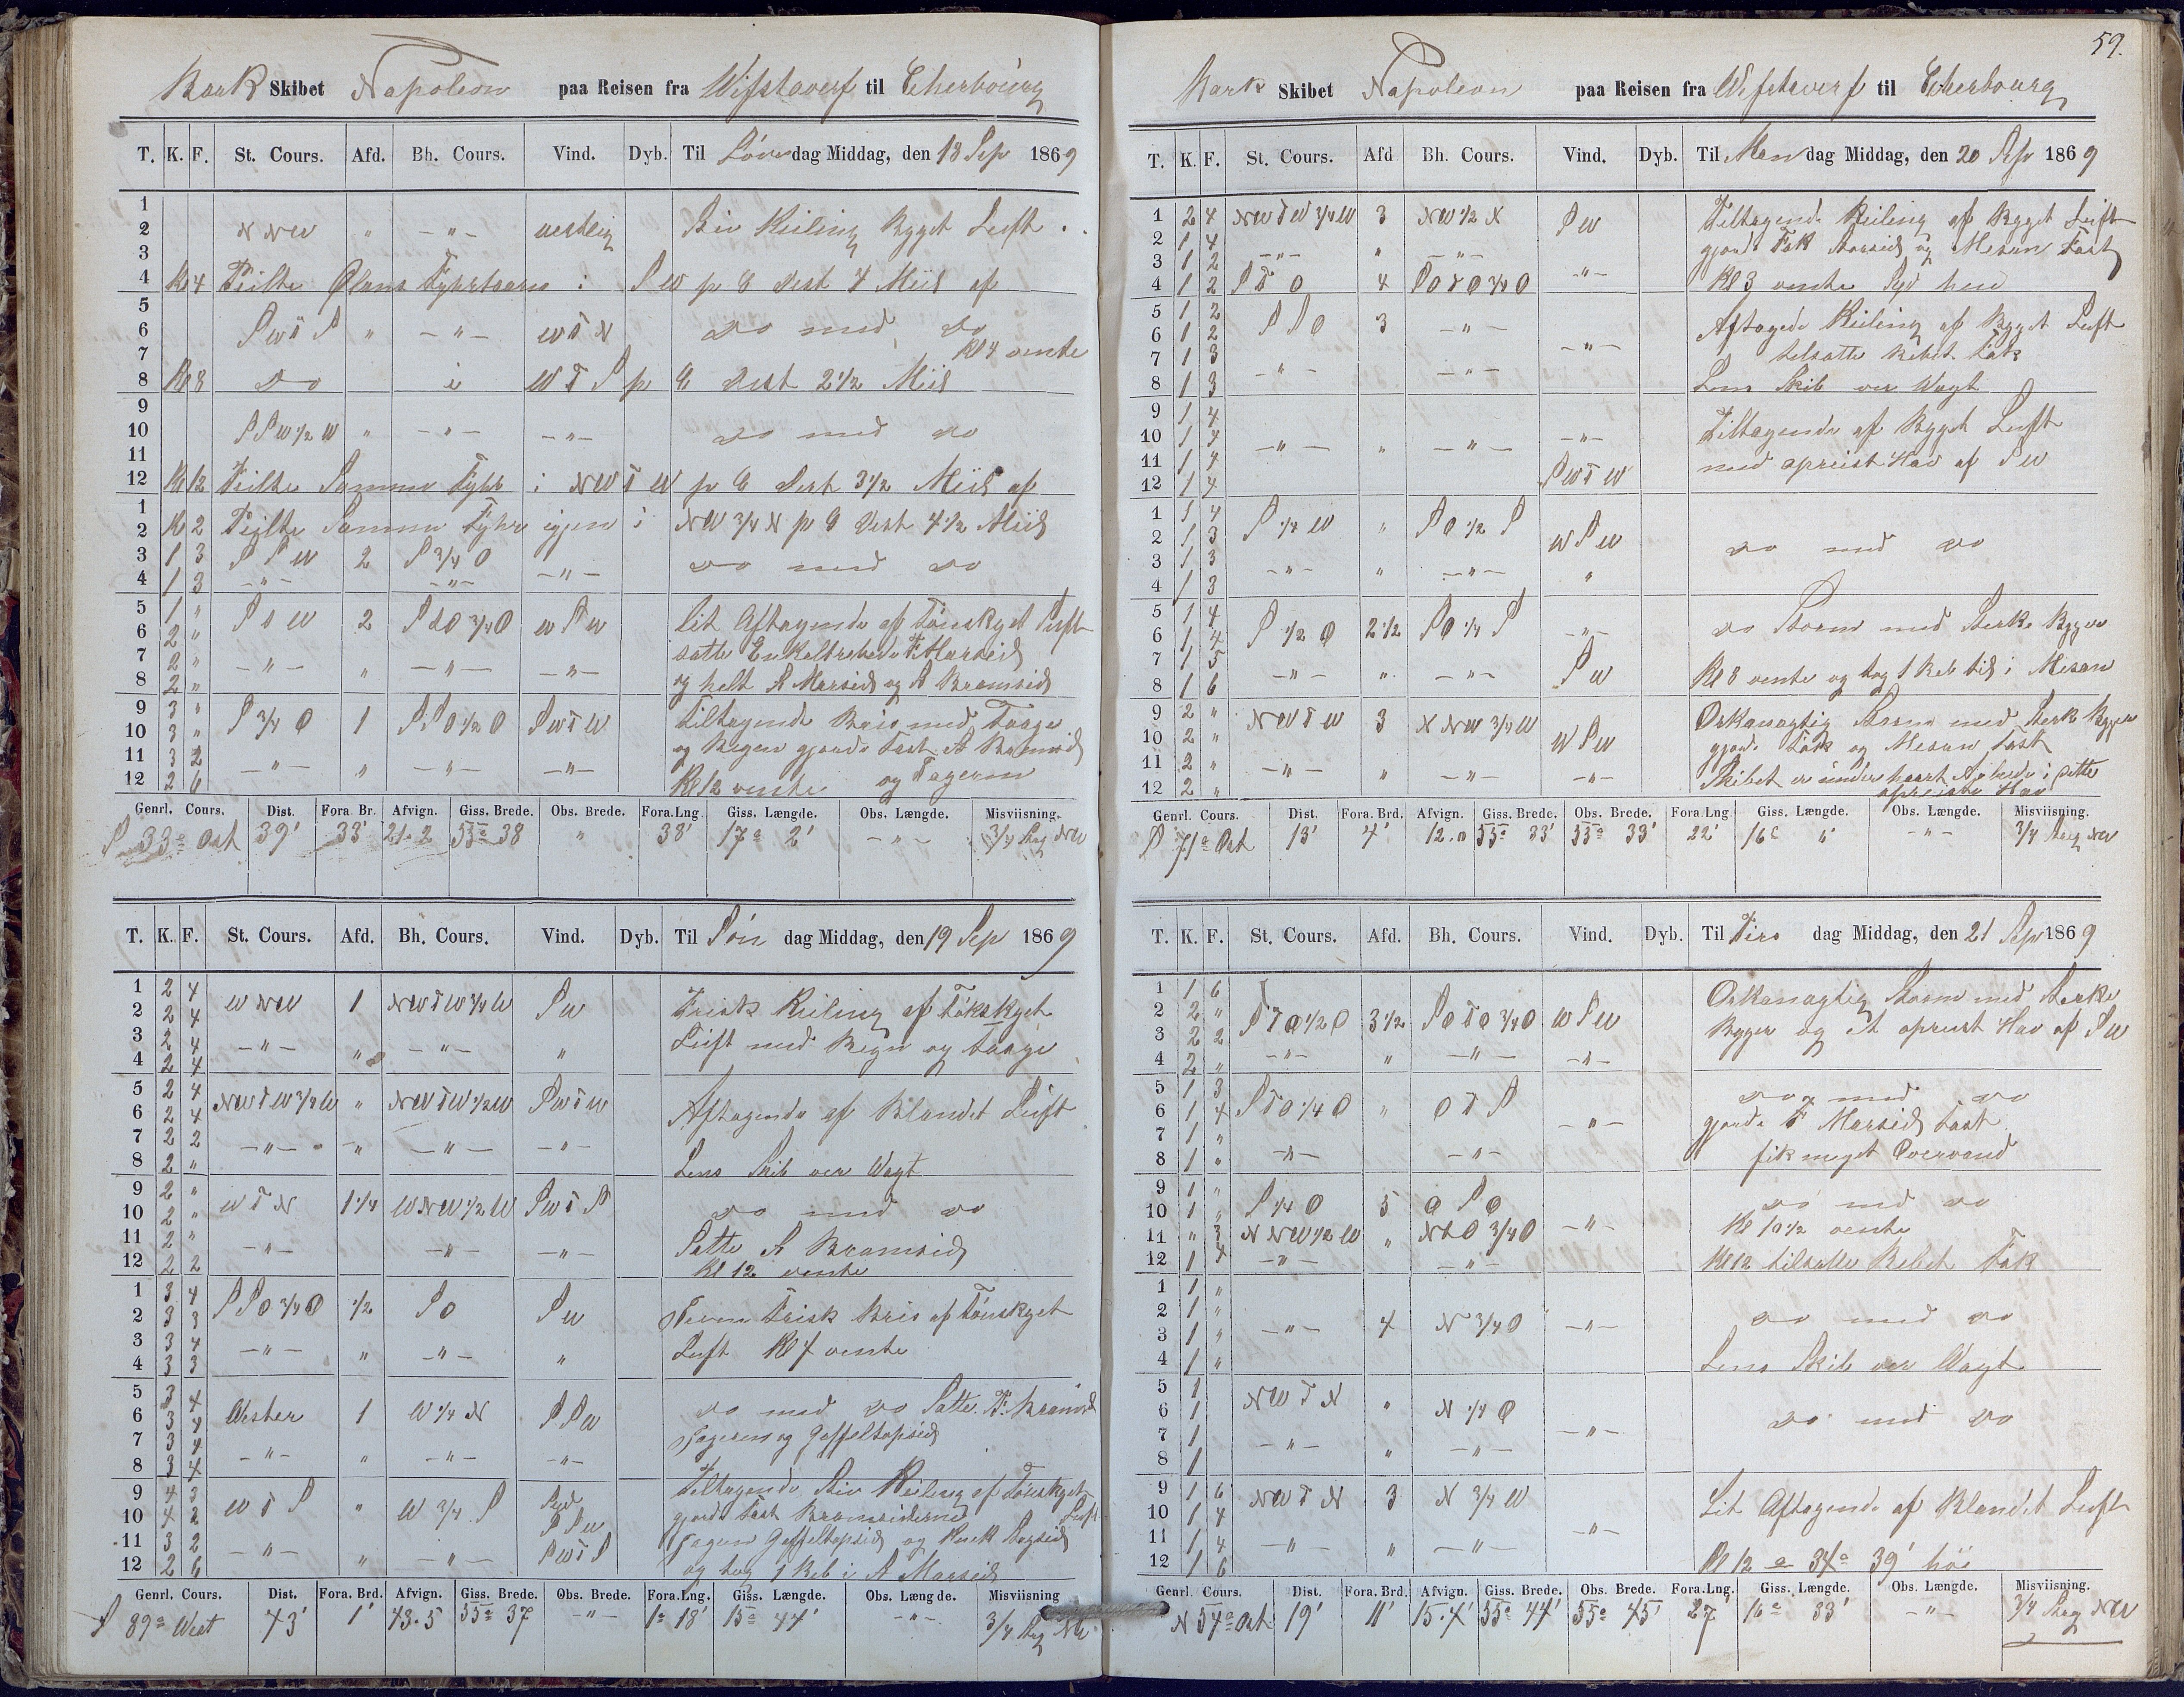 Bark Skibet Napoleon paa Reisen fra Wifstaverf til Cherbourg
T. K. F. St. Cours. Afd. Bh. Cours. Vind. Dyb. Til Löverdag Middag, den 18 Sep 1869
1
2 NNW " -"- vestlig Stiv Kuling Byget Luft
3
4 Kl 4 Peilte Ølans Fyhrtaarn i SW p C Dest 4 Miil af
5
6 SWTS " -"- WTN do med do
7 Kl 4 vente
8 Kl 8 do i WTS p C Dest 2 1/2 Miil
9
10 SSW 1/2 W " -"- -"- do med do
11
12 Kl 12 Peilte Samme Fyhr i NWTW p C Dest 3 1/2 Miil af
1
2 Kl 2 Peilte Samme Fyhr igjen i NW 3/4 N p C Dest 4 1/2 Miil
3 1 3 SSW 2 S 3/4 O -"- do med do
4 1 3 -"- -"-
5 1 " 2 lit Aftagende af Tönskyet Luft
6 2 " W S W satte Enkeltrebede F Marseil
7 2 " -"- " -"- -"-
8 2 " og helt S Marseil og S Bramseil
9 3 " S 3/4 O 1 SSO 1/2 O SWTW tiltagende Bris med Taage
10 3 " og Regen gjorde Fast S Bramseil
11 3 2 -"- " -"- -"-
12 2 6 Kl 12 vente og Jageren
Genrl. Cours. Dist. Fora Br. Afvign. Giss. Brede. Obs. Brede. Fora. Lng. Giss. Længde. Obs. Længde. Misviisning.
S 33° Ost 39' 33' 21.2 55° 38 " 38' 17° 2' -"- 3/4 Streg NW
T. K. F. St. Cours. Afd. Bh. Cours. Vind. Dyb. Til Sön dag Middag, den 19 Sep 1869
1 2 4 WNW 1 NWTW 3/4 W SW Frisk Kuling af Tökskyet
2 2 4
3 2 4 -"- " -"- " Luft med Regn og Taage
4 2 4
5 2 4 NWTW 3/4 W " NWTW 1/2 W SWTW Aftagende af Blandet Luft
6 2 4
7 2 2 -"- " -"- -"-
8 2 " Lens Skib ver Wagt
9 2 " WTN 1 1/4 WNW 1/2 W SWTS do med do
10 2 "
11 2 " -"- -"- -"- Satte S Bramseil
12 2 2 Kl 12 vente
1 3 4 SSO 3/4 O 1/2 SO SW Jevn Frisk Bris af Tönskyet
2 3 3
3 3 4 -"- " -"- " Luft Kl 4 vente
4 3 3
5 3 4 Wester 1 W 1/4 N SSW do med do Satte F. Bramseil
6 3 4 Jageren og Gaffeltopseil
7 3 4 -"- " -"- -"-
8 3 4 Tiltagende Stiv Kuling af Tönskyet
9 4 3 WTS " W 3/4 S Syd Luft
10 4 2 gjorde Fast Bramseilerne SSW
11 3 2 -"- " -"- SWTS Jageren Gaffeltopseil og Stagseil
12 2 6 og tog 1 Reb i S Marseil
Genrl. Cours. Dist. Fora. Brd. Afvign. Giss. Brede. Obs. Brede. Fora. Lng. Giss. Længde. Obs. Længde. Misviisning
S 89° West 43' 1' 43.5 55° 37 -"- 1° 18' 15° 44' -"- 3/4 Streg NW
59.
Bark Skibet Napoleon paa Reisen fra Wifstaverf til Cherbourg
T. K. F. St. Cours. Afd Bh. Cours. Vind. Dyb. Til Man dag Middag, den 20 Sep 1869
1 2 4 NWTW 3/4 W 3 NW 1/2 N SW Tiltagende Kuling af Byget Luft
2 1 4 gjorde Fok Storseil og Mesan Fast
3 1 2 -"- " -"-
4 1 2 STO 4 SOTO 3/4 O -"- Kl 3 vente Syd hen
5 1 2 SSO 3 -"- Aftagede Kuling af Bygget Luft
6 1 2
7 1 3 -"- -"- -"- tilsatte Rebet Fok
8 1 3 Lens Skib ver Wagt
9 1 4 Tiltagende af Bygget Luft
10 1 4 -"- " -"- -"-
11 1 4 SWTW med opreist Hav af SW
12 1 4
1 1 4 S 1/4 W " SO 1/2 S WSW
2 1 3 do med do
3 1 3 -"- " -"- "
4 1 3
5 1 4 S 1/2 O 2 1/2 SO 1/4 S -"- do Storm med Sterke Byger
6 1 4
7 1 5 -"- " -"- SW Kl 8 vente og tog 1 Reb til i Mesan
8 1 6
9 2 " NWTW 3 NNW 3/4 W WSW Orkanagtig Storm med Sterk Byger
10 2 " gjorde Fok og Mesan Fast
11 2 " -"- " -"- -"- Skibet er under haart Arbeide i dette
12 2 " opreiste Hav
Genrl. Cours. Dist. Fora. Brd. Afvign. Giss. Brede. Obs. Brede. Fora. Lng. Giss. Længde. Obs. Længde. Misviisning.
S 71° Ost 13' 4' 12.0 55° 33' 55° 33' 22' 16° " -"- 3/4 Streg NW
T. K. F. St. Cours. Afd. Bh. Cours. Vind. Dyb. Til Tirs dag Middag, den 21 Sep 1869
1 1 6 Orkanagtig Storm med Sterke
2 2 " STO 1/2 O 3 1/2 SOTO 3/4 O WSW Byger og et opreist Hav af SW
3 2 2
4 2 " -"- " -"- -"-
5 1 3 STO 1/4 O " OTS do med do
6 1 4 gjorde F Marseil Fast
7 1 " -"-
8 1 " -"- -"- fik meget Overvand
9 1 " S 1/4 O 5 OSO do med do
10 1 " Kl 10 1/2 vente
11 " 3 NNW 1/2 W " NTO 3/4 O -"-
12 1 4 -"- -"- Kl 12 tilsatte Rebet Fok
1 1 "
2 1 " -"- 4 N 3/4 O -"- do med do
3 1 "
4 1 " Lens Skib ver Wagt
5 1 NWTN " N 1/4 O
6 1 -"- do med do
7 1 -"- " -"-
8 1
9 1 6 NWTN 3 N 3/4 W Lit Aftagende af Blandet Luft
10 1 4 -"-
11 1 4 -"- " -"-
12 1 6 Kl 12 34° 39' höi
Genrl. Cours. Dist. Fora. Brd. Afvign. Giss. Brede. Obs. Brede. Fora. Lng. Giss. Længde. Obs. Længde. Misviisning.
N 54° Ost 19' 11' 15.4' 55° 44' 55° 45' 27' 16° 33' -"- 3/4 Streg NW